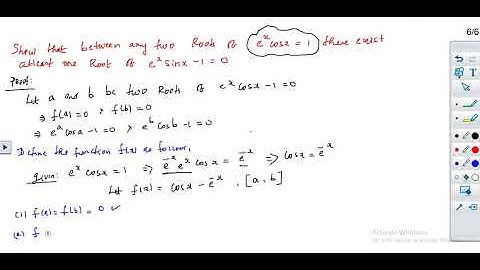 6/6
Show that between any two Roots of e^x cosx = 1 there exist
atleast one Root of e^x sinx - 1 = 0
Proof:
Let a and b be two Roots of e^x cosx - 1 = 0
⇒ f(a) = 0 , f(b) = 0
⇒ e^a cosa - 1 = 0 , e^b cosb - 1 = 0
Define the function f(x) as follows,
given: e^x cosx = 1 ⇒ e^-x e^x cosx = e^-x ⇒ cosx = e^-x
Let f(x) = cosx - e^-x , [a, b]
(1) f(a) = f(b) = 0 ✓
(2) f
Activate Windows